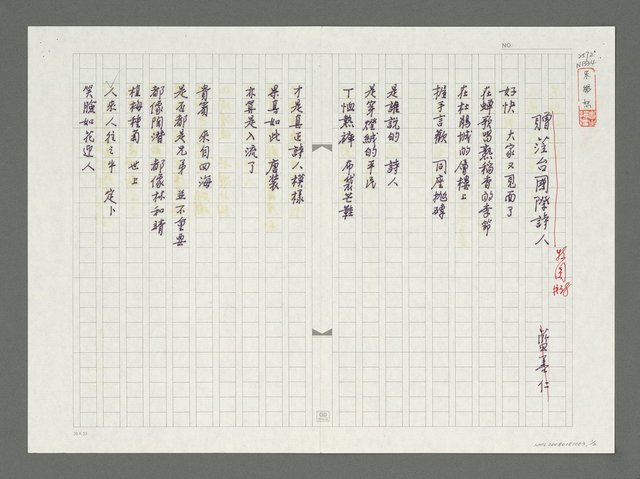 贈蒞台國際詩人
藍善仁
好快 大家又見面了
在蟬歌唱熟稻香的季節
在杜鵑城的層樓上
握手言歡 同座拋磚
是誰說的 詩人
是穿燈絨的平民
丁恤熱褲 布袋芒鞋
才是真正詩人模樣
果真如此 唐裝
亦算是入流了
賓葡 來自四海
是否都是兄弟 並不重要
都像陶潛 都像林和靖
植梅種菊 世上
人來人往之中 定卜
笑臉如花迎人
NO.